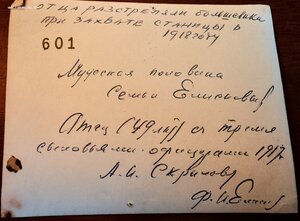 ОТЦА РАССТРЕЛЯЛИ БОЛЬШЕВИКИ
ПРИ ЗАХВАТЕ СТАНИЦЫ В
1918 ГОДУ
601
Мужская половина
Семьи
Отец (49 лет) с тремя
сыновьями-офицерами 1917
А.И. Скрылову